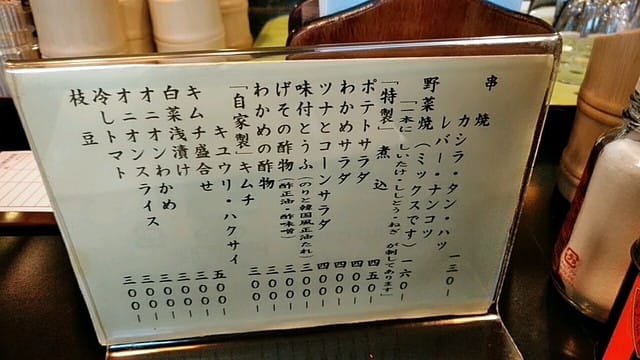 串焼
カシラ・タン・ハツ
レバー・ナンコツ 一三〇-
野菜焼(ミックスです) 一六〇-
(一本にしいたけ・ししとう・ねぎ が刺してあります)
「特製」煮込 四五〇-
ポテトサラダ 四〇〇-
わかめサラダ 四〇〇-
ツナとコーンサラダ 四〇〇-
味付とうふ(のりと韓国風正油たれ) 三〇〇-
げその酢物(酢正油・酢味噌) 三〇〇-
わかめの酢物 三〇〇-
「自家製」キムチ
キュウリ・ハクサイ 三〇〇-
キムチ盛合せ 五〇〇-
白菜浅漬け 三〇〇-
オニオンわかめ 三〇〇-
オニオンスライス 三〇〇-
冷しトマト 三〇〇-
枝豆 三〇〇-